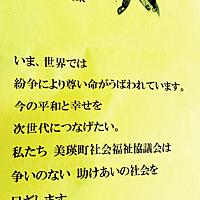 様
いま、世界では
紛争により尊い命がうばわれています。
今の平和と幸せを
次世代につなげたい。
私たち 美瑛町社会福祉協議会は
争いのない 助けあいの社会を